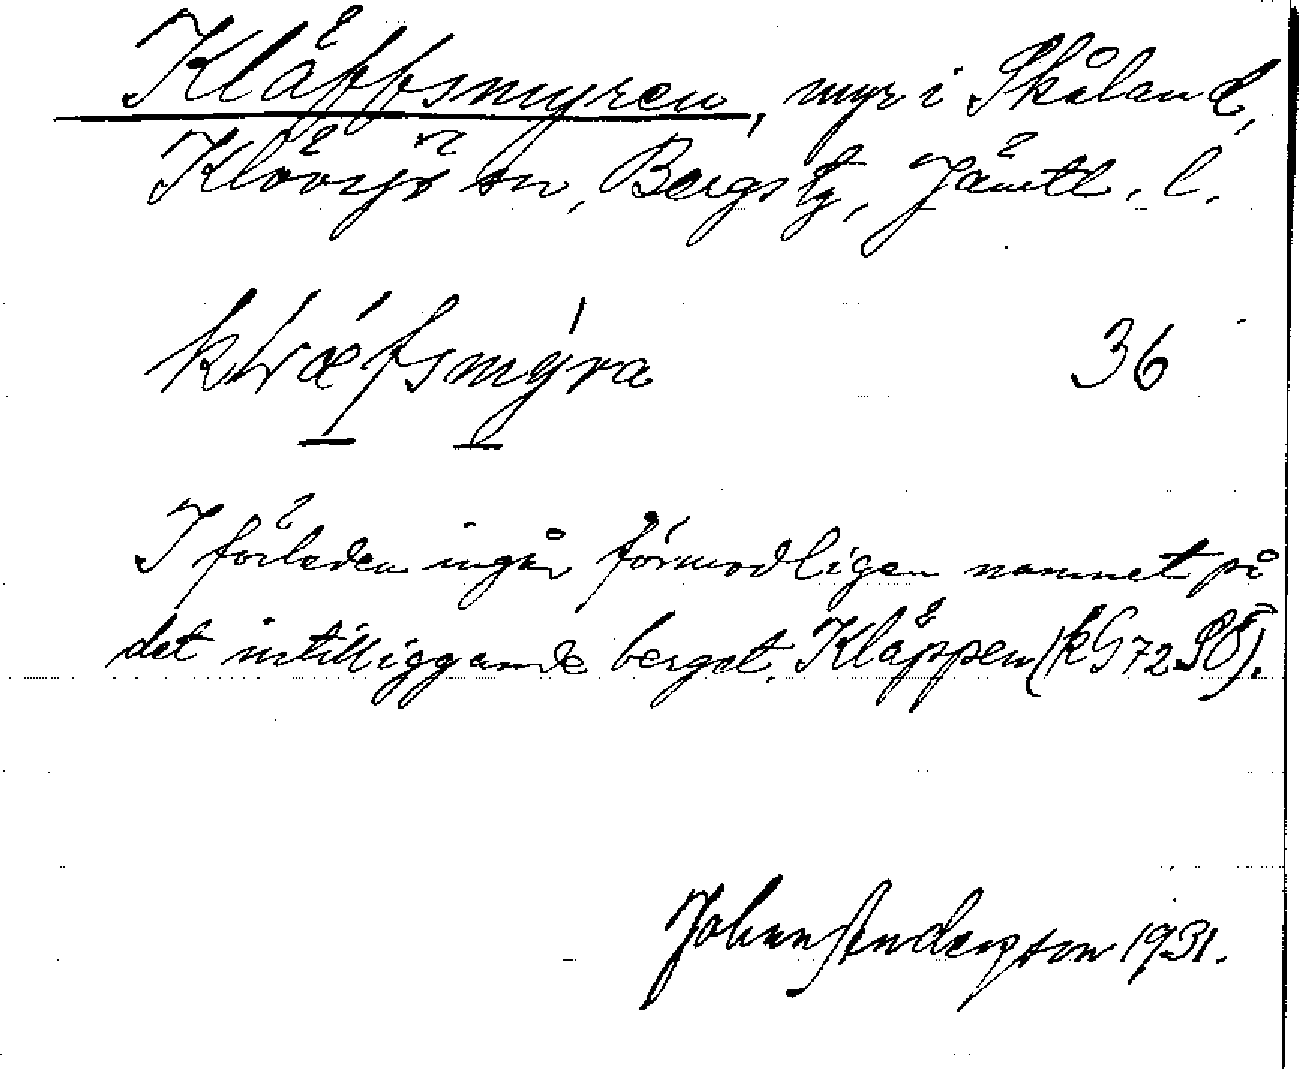 Kläppsmyren, myr i Skålan d,
Klövsjö sn, Bergs tg, Jämtl. l.
36
I förleden ingår förmodligen namnet på
det intilliggande berget Kläppen (kG 72 SÖ).
Johan Anderson 1931.